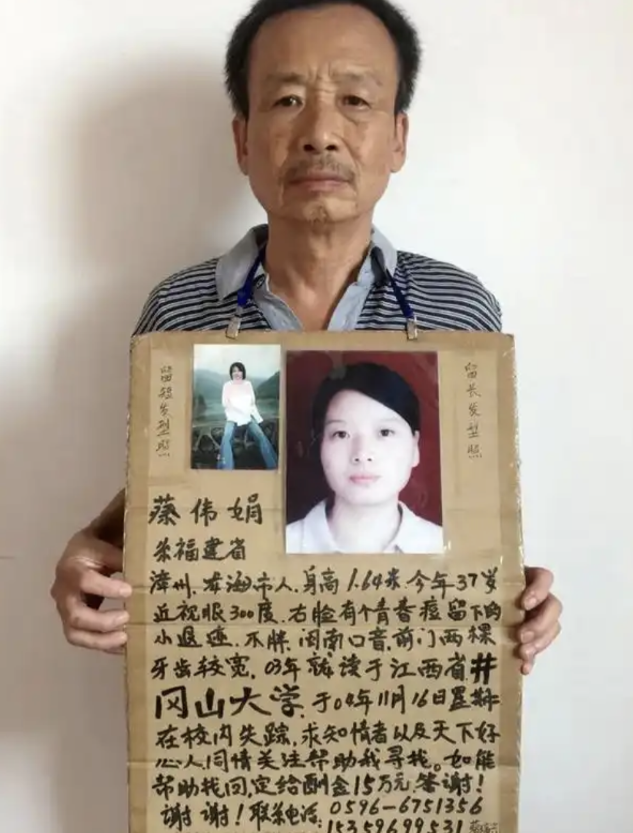 留短发型照
留长发型照
蔡伟娟
系福建省
漳州.龙海市人.身高1.64米.今年37岁
近视眼300度.右脸有个青春痘留下的
小 不胖.闽南口音.前门两棵
牙齿较宽.03年就读于江西省井
冈山大学.于04年11月16日星期
在校内失踪,求知情者以及天下好
心人.同情关注帮助我寻找。如能
帮助找回,定给酬金15万元.答谢!
谢谢!联系电话:0596-6751356
15359699531